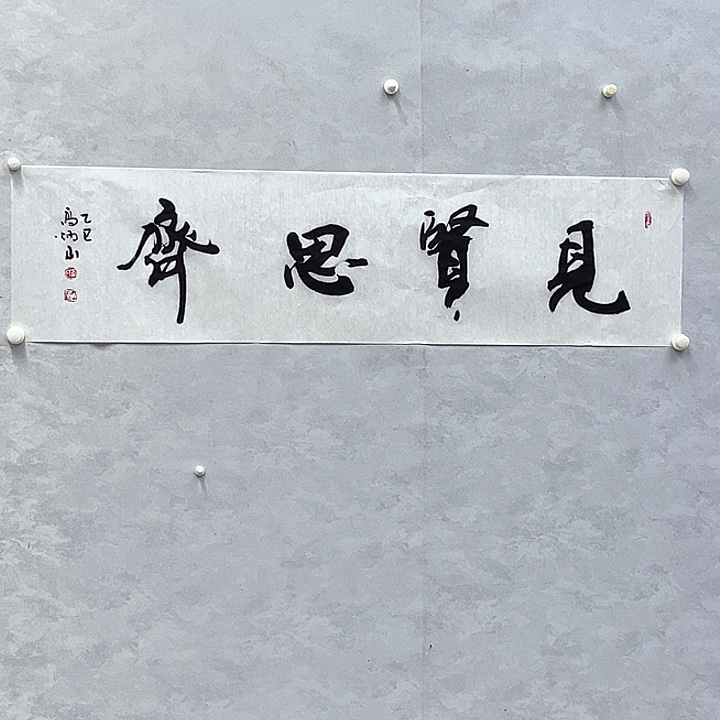 見賢思齊
乙巳
高炳山